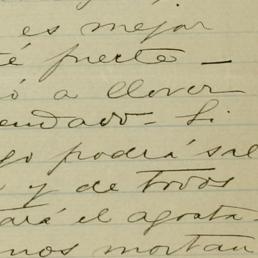 es mejor
té fuerte —
ó a llover
endado - Si
go podrá sal
y de todos
ará el agosta
nos mortan